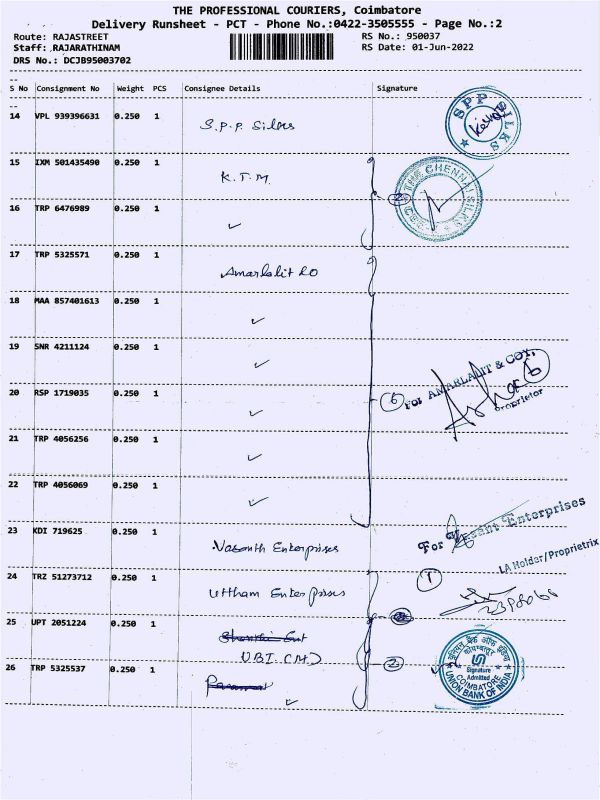 THE PROFESSIONAL COURIERS, Coimbatore
Delivery Runsheet - PCT - Phone No.:0422-3505555 - Page No.:2
Route: RAJASTREET RS No.: 950037
Staff: RAJARATHINAM RS Date: 01-Jun-2022
DRS No.: DCJB95003702
S No Consignment No Weight PCS Consignee Details Signature
14 VPL 939396631 0.250 1 S.P.P. Silks
SPP SILKS
15 IXM 501435490 0.250 1 K.T.M.
THE CHENNAI SILKS
CBE
16 TRP 6476989 0.250 1 ✓
17 TRP 5325571 0.250 1 Amarlalit
18 MAA 857401613 0.250 1 ✓
19 SNR 4211124 0.250 1 ✓
20 RSP 1719035 0.250 1 ✓ 6 For AMARLALIT & COY,
Proprietor
21 TRP 4056256 0.250 1 ✓
22 TRP 4056069 0.250 1 ✓
23 KDI 719625 0.250 1 Vasanth Enterprises
For Vasant Enterprises
LA Holder/Proprietrix
24 TRZ 51273712 0.250 1 Uttham Enterprises 1
25 UPT 2051224 0.250 1
UBI.CM) 2
यूनियन बैंक ऑफ इंडिया
कोयम्बत्तूर
Signature
Admitted
COIMBATORE
UNION BANK OF INDIA
26 TRP 5325537 0.250 1 ✓